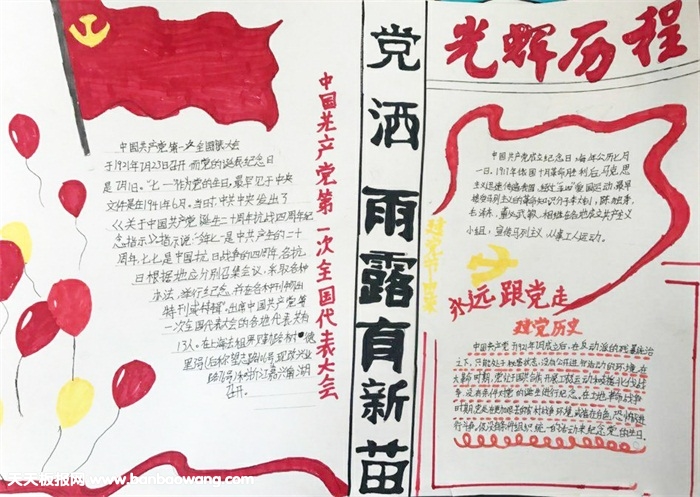 中国共产党第一次全国代表大会
党洒雨露育新苗
光辉历程
永远跟党走
建党历史
中国共产党第一次全国代表大会
于1921年7月23日召开.而党的诞辰纪念日
是7月1日."七一"作为党的生日,最早见于中央
文件是在1941年6月.当时,中共中央发出了
《关于中国共产党诞生二十周年抗战四周年纪
念指示》.指示说:"今年七一是中共产生的二十
周年,七七是中国抗日战争的四周年,各抗
日根据地应分别召集会议,采取各种
办法,举行纪念,并在各种刊物出
特刊或特辑".出席中国共产党第
一次全国代表大会的各地代表共为
13人,在上海法租界
召开.
中国共产党成立纪念日,每年公历七月
一日.1917年俄国十月革命胜利后,马克思
主义迅速传播
毛泽东,董必武等,相继在各地成立共产主义
小组,宣传马列主义,从事工人运动.
中国共产党于1921年7月成立后,在反动派的残暴统治
之下,只能处于秘密状态,没有公开进行活动的环境.在
大革命时期,
争,没有条件对党的诞生进行纪念.在土地革命战争
时期,
行斗争,仅没有条件组织统一的活动来纪念党的生日.
天天板报网 www.banbaowang.com